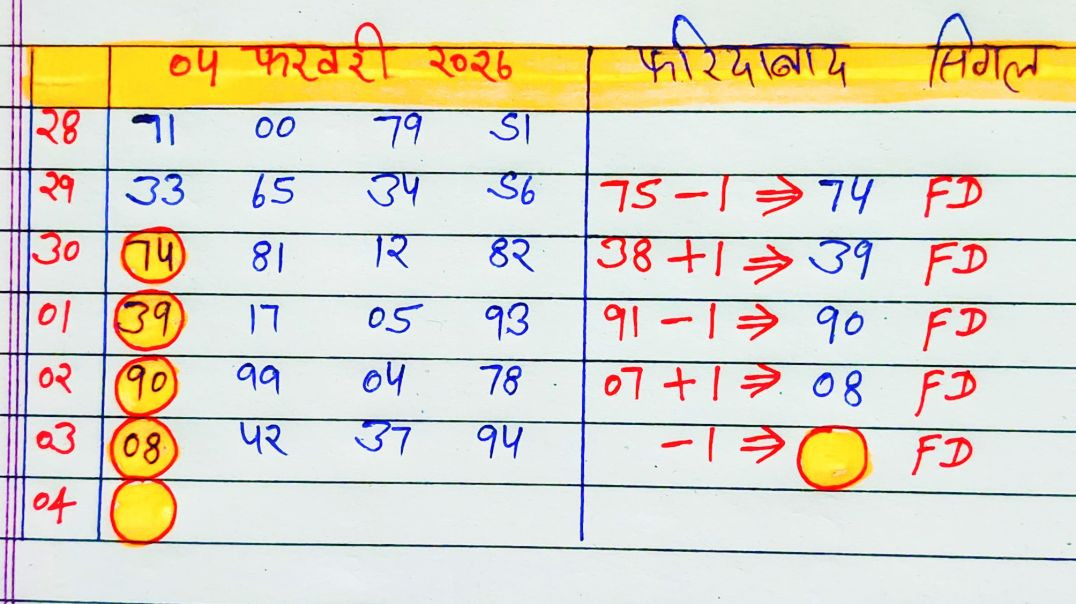 ०4 फरवरी २०२६ फरिदाबाद सिगल
२8 71 00 79 51
२9 33 65 34 56 75 - 1 ⇒ 74 FD
30 74 81 1२ 8२ 38 + 1 ⇒ 39 FD
01 39 17 05 93 91 - 1 ⇒ 90 FD
0२ 90 99 04 78 07 + 1 ⇒ 08 FD
03 08 4२ 37 94 - 1 ⇒ FD
04